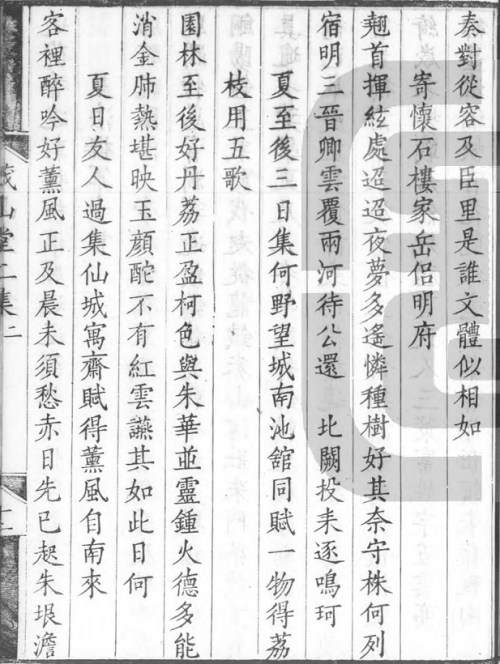 奏對從容及臣里是誰文體似相如
寄懷石樓家岳侶明府
翹首揮絃處迢迢夜夢多遙憐種樹好其奈守株何列
宿明三晉卿雲覆兩河待公還 北闕投耒逐鳴珂
夏至後三日集何野望城南池舘同賦一物得荔
枝用五歌
園林至後好丹荔正盈柯色與朱華並靈鍾火德多能
消金肺熱堪映玉顔酡不有紅雲讌其如此日何
夏日友人過集仙城寓齋賦得薰風自南來
客裡醉吟好薰風正及晨未須愁赤日先已起朱垠澹
山堂二集 二